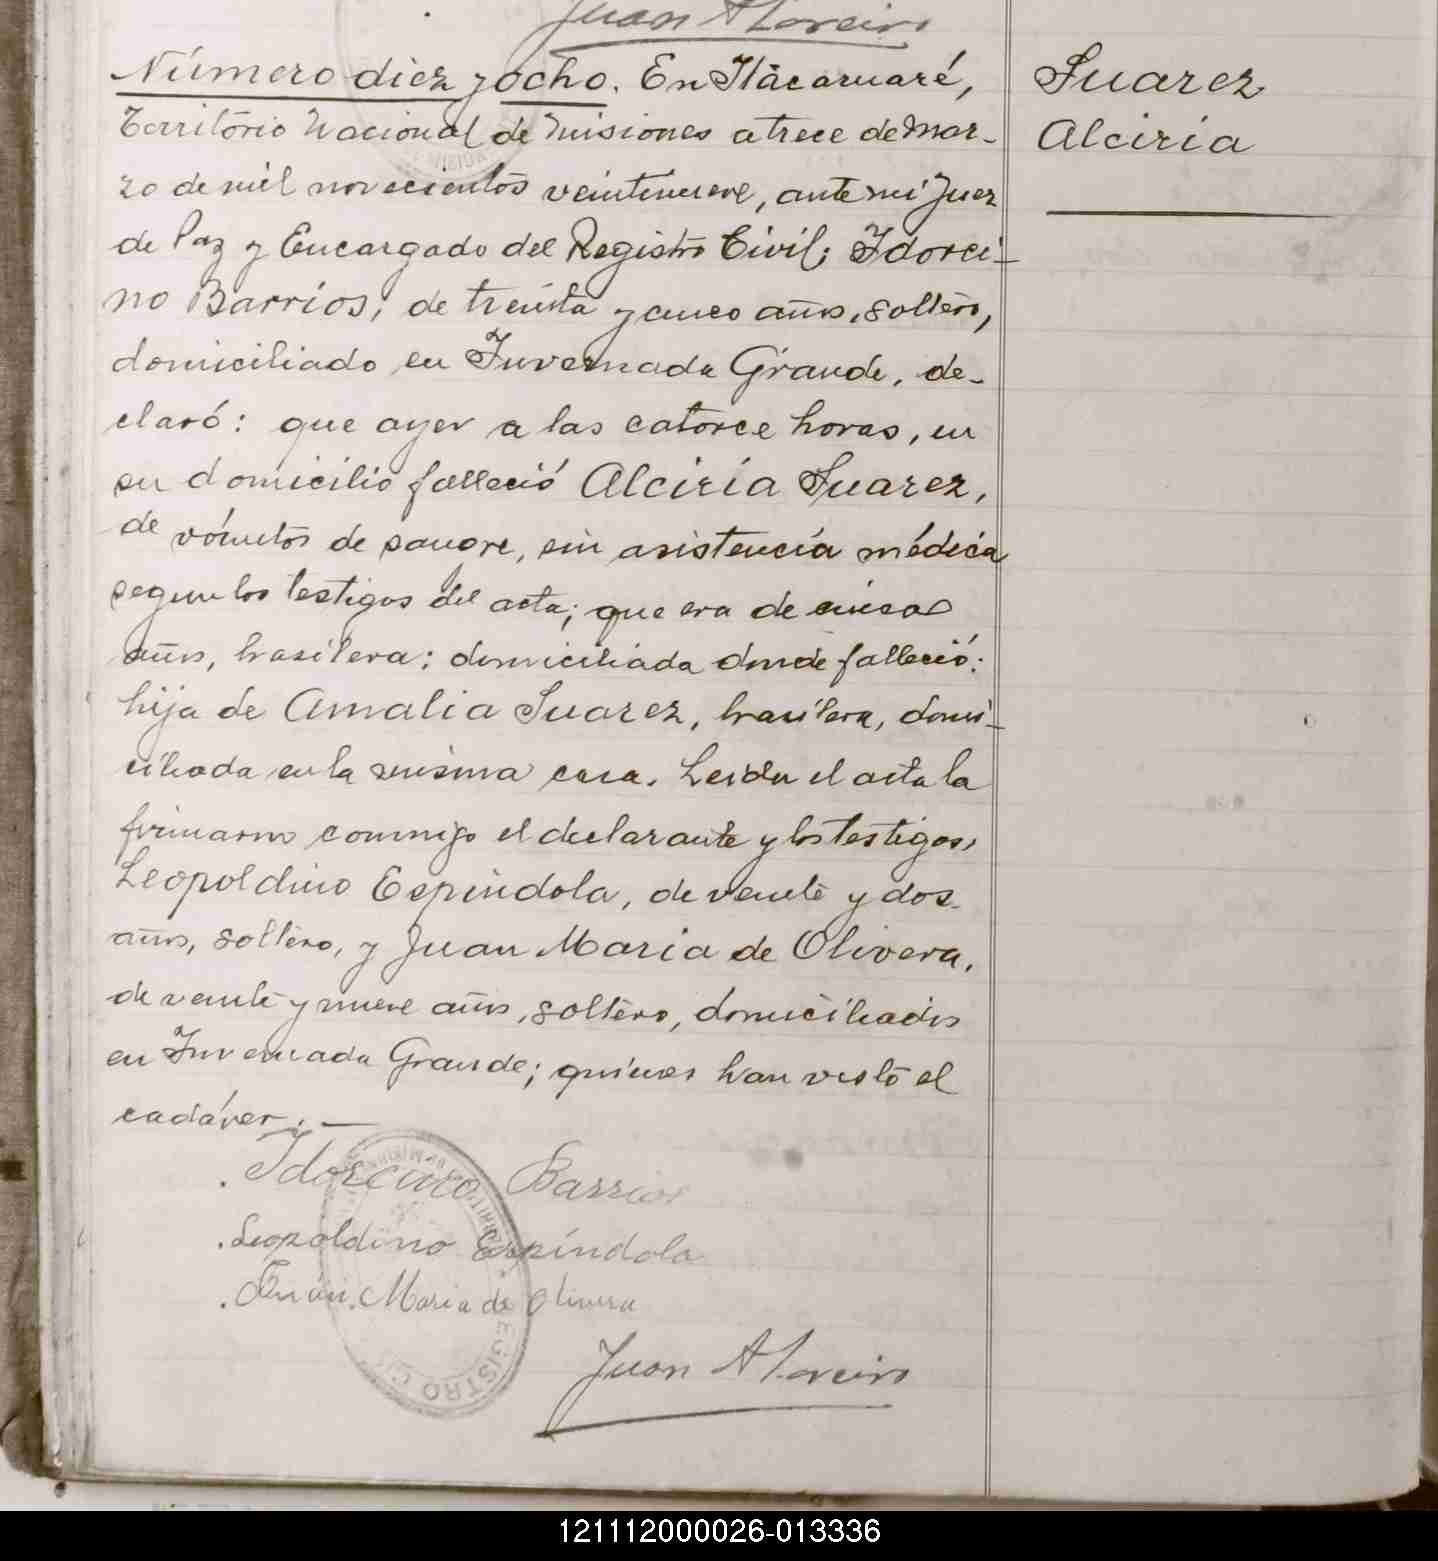 Juan A Loreiro
Número diez y ocho. En Itacaruaré,
Territorio Nacional de Misiones a trece de Mar-
zo de mil novecientos veintinueve, ante mi Juez
de Paz y Encargado del Registro Civil; Idorci-
no Barrios, de treinta y cinco años, soltero,
domiciliado en Invernada Grande, de-
claró: que ayer a las catorce horas, en
su domicilio falleció Alciria Suarez,
de vómitos de sangre, sin asistencia médica
segun los testigos del acta; que era de cinco
años, brasilera; domiciliada donde falleció;
hija de Amalia Suarez, brasilera, domi-
ciliada en la misma casa. Leida el acta la
firmaron conmigo el declarante y los testigos,
Leopoldino Espíndola, de veinte y dos
años, soltero, y Juan Maria de Olivera,
de veinte y nueve años, soltero, domiciliados
en Invernada Grande; quienes han visto el
cadáver.—
Idorcino Barrios
Leopoldino Espíndola
Juan Maria de Olivera
REGISTRO
Juan A Loreiro
Suarez
Alciria
121112000026-013336